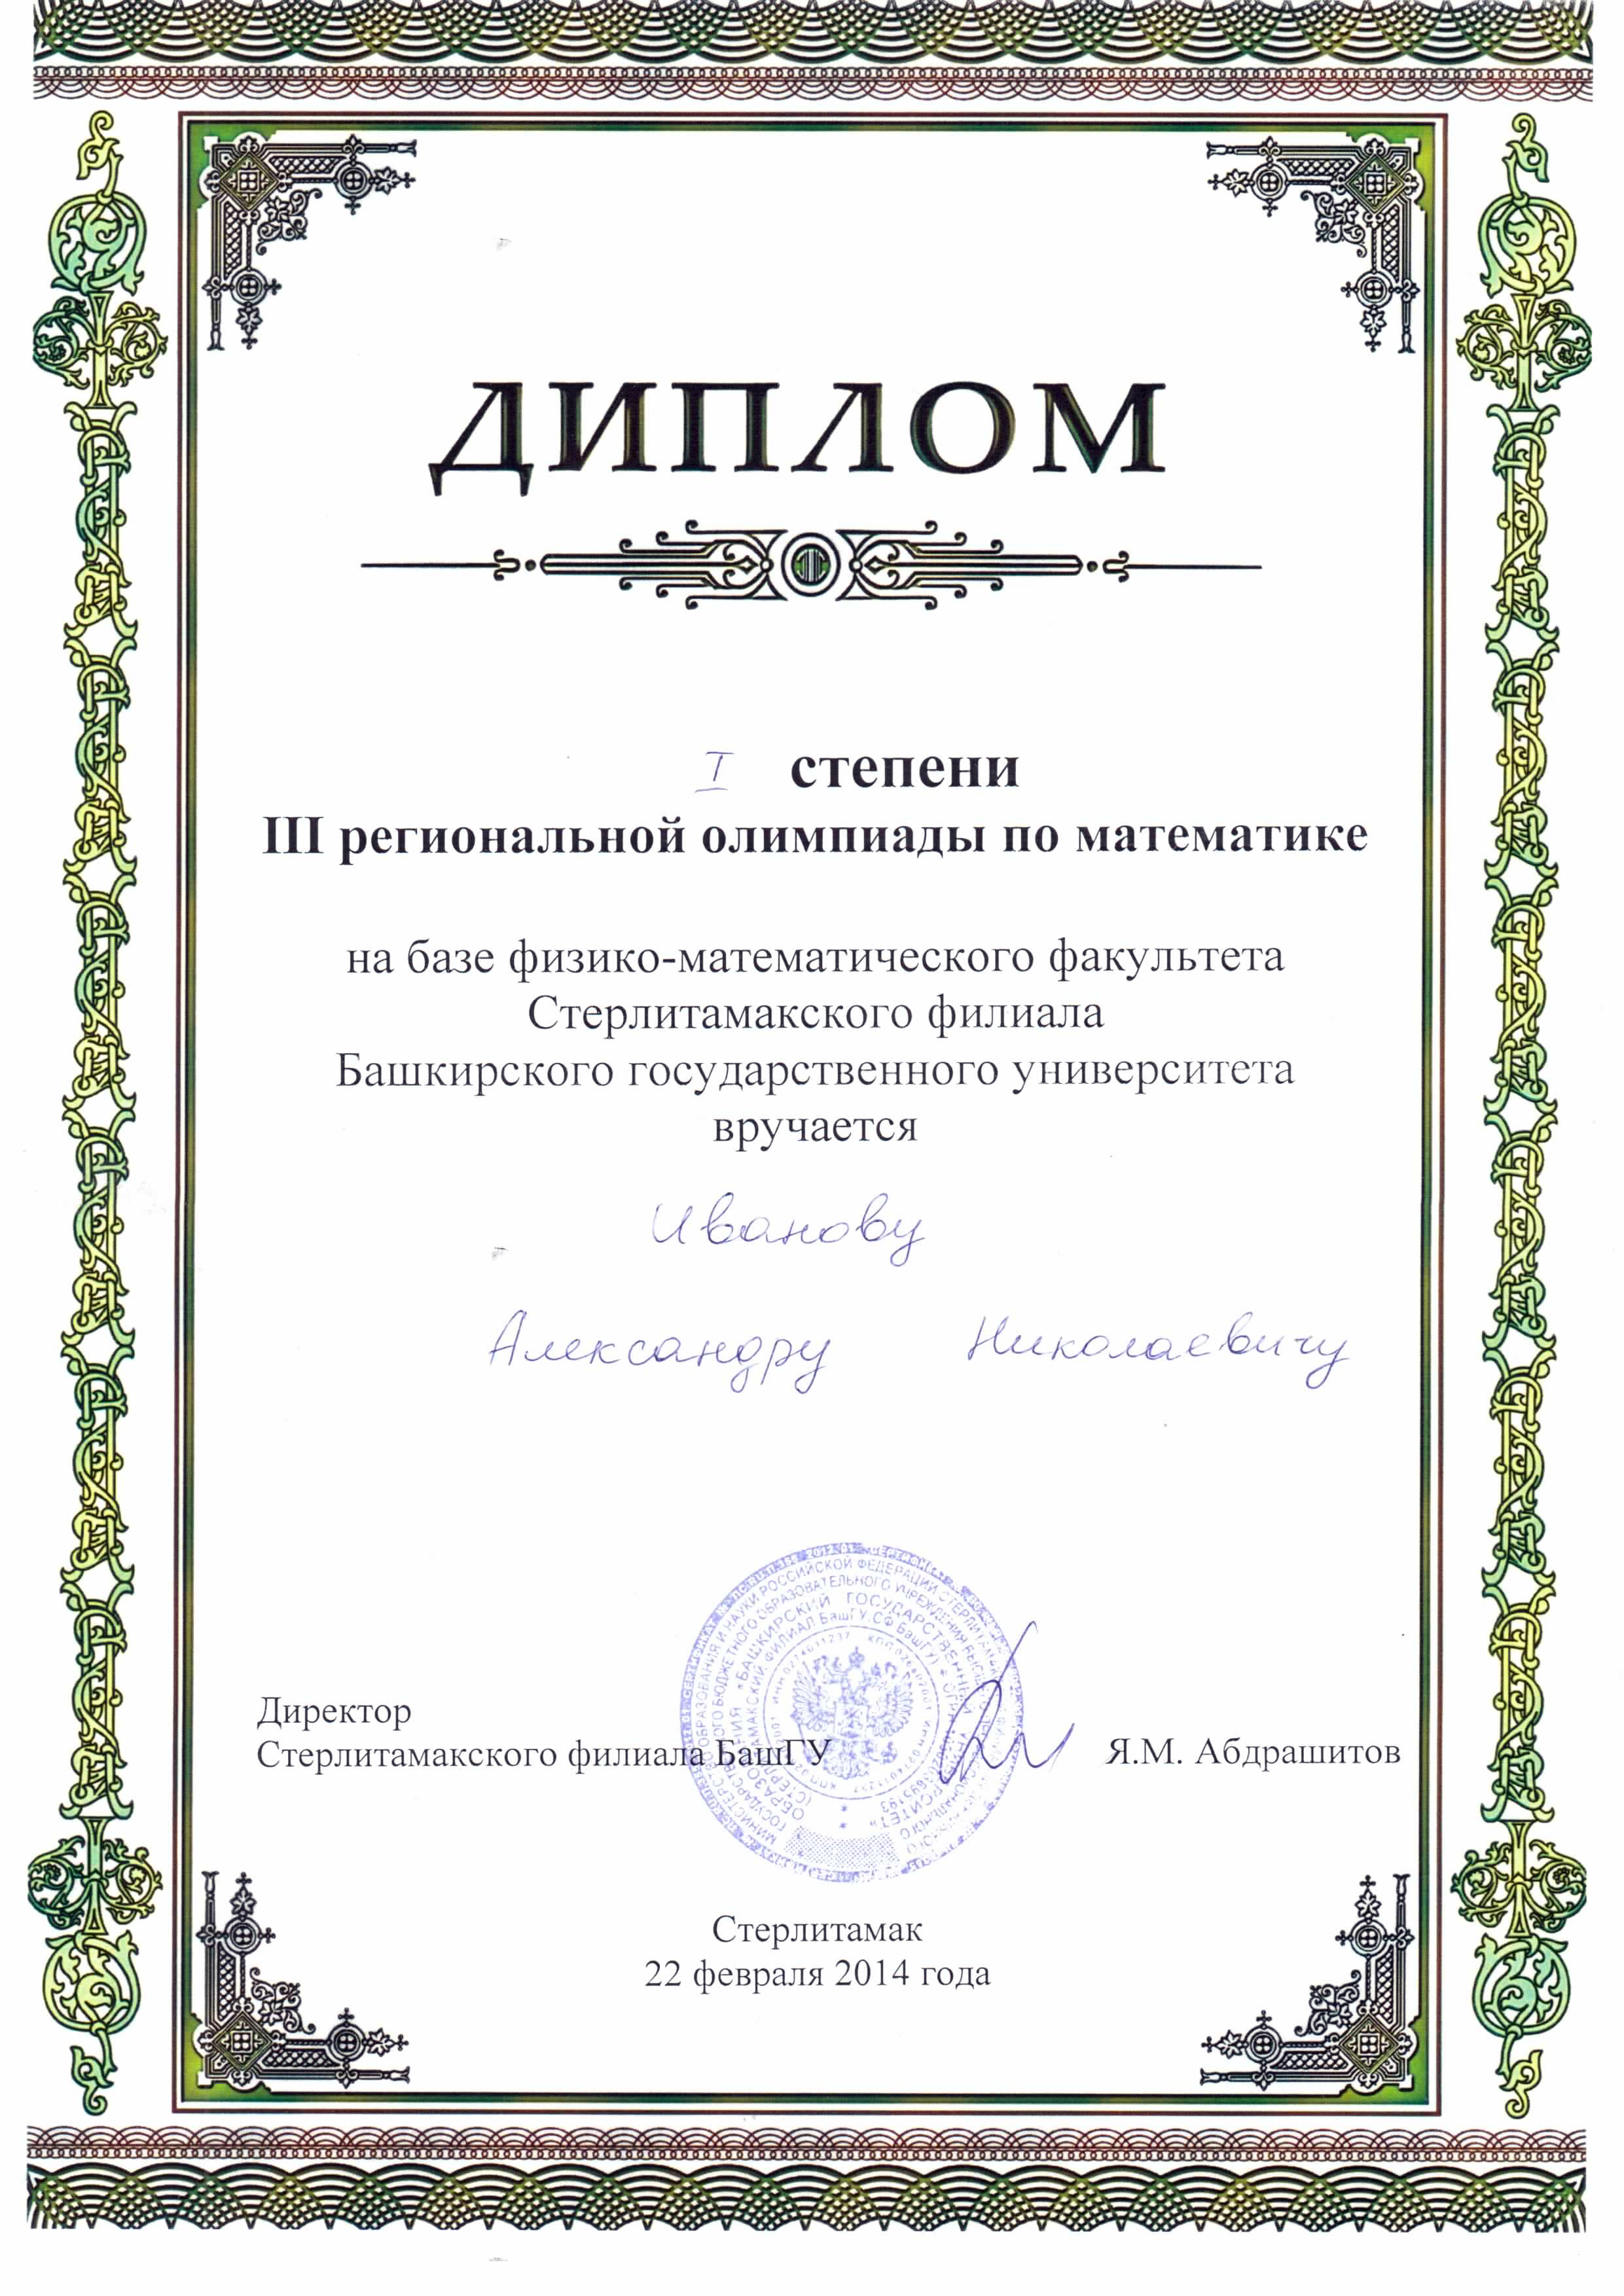 ДИПЛОМ
I степени
III региональной олимпиады по математике
на базе физико-математического факультета
Стерлитамакского филиала
Башкирского государственного университета
вручается
Иванову
Александру Николаевичу
Директор
Стерлитамакского филиала БашГУ Я.М. Абдрашитов
МИНИСТЕРСТВО ОБРАЗОВАНИЯ И НАУКИ РОССИЙСКОЙ ФЕДЕРАЦИИ
ГОСУДАРСТВЕННОГО БЮДЖЕТНОГО ОБРАЗОВАТЕЛЬНОГО УЧРЕЖДЕНИЯ
«БАШКИРСКИЙ ГОСУДАРСТВЕННЫЙ УНИВЕРСИТЕТ»
Стерлитамак
22 февраля 2014 года